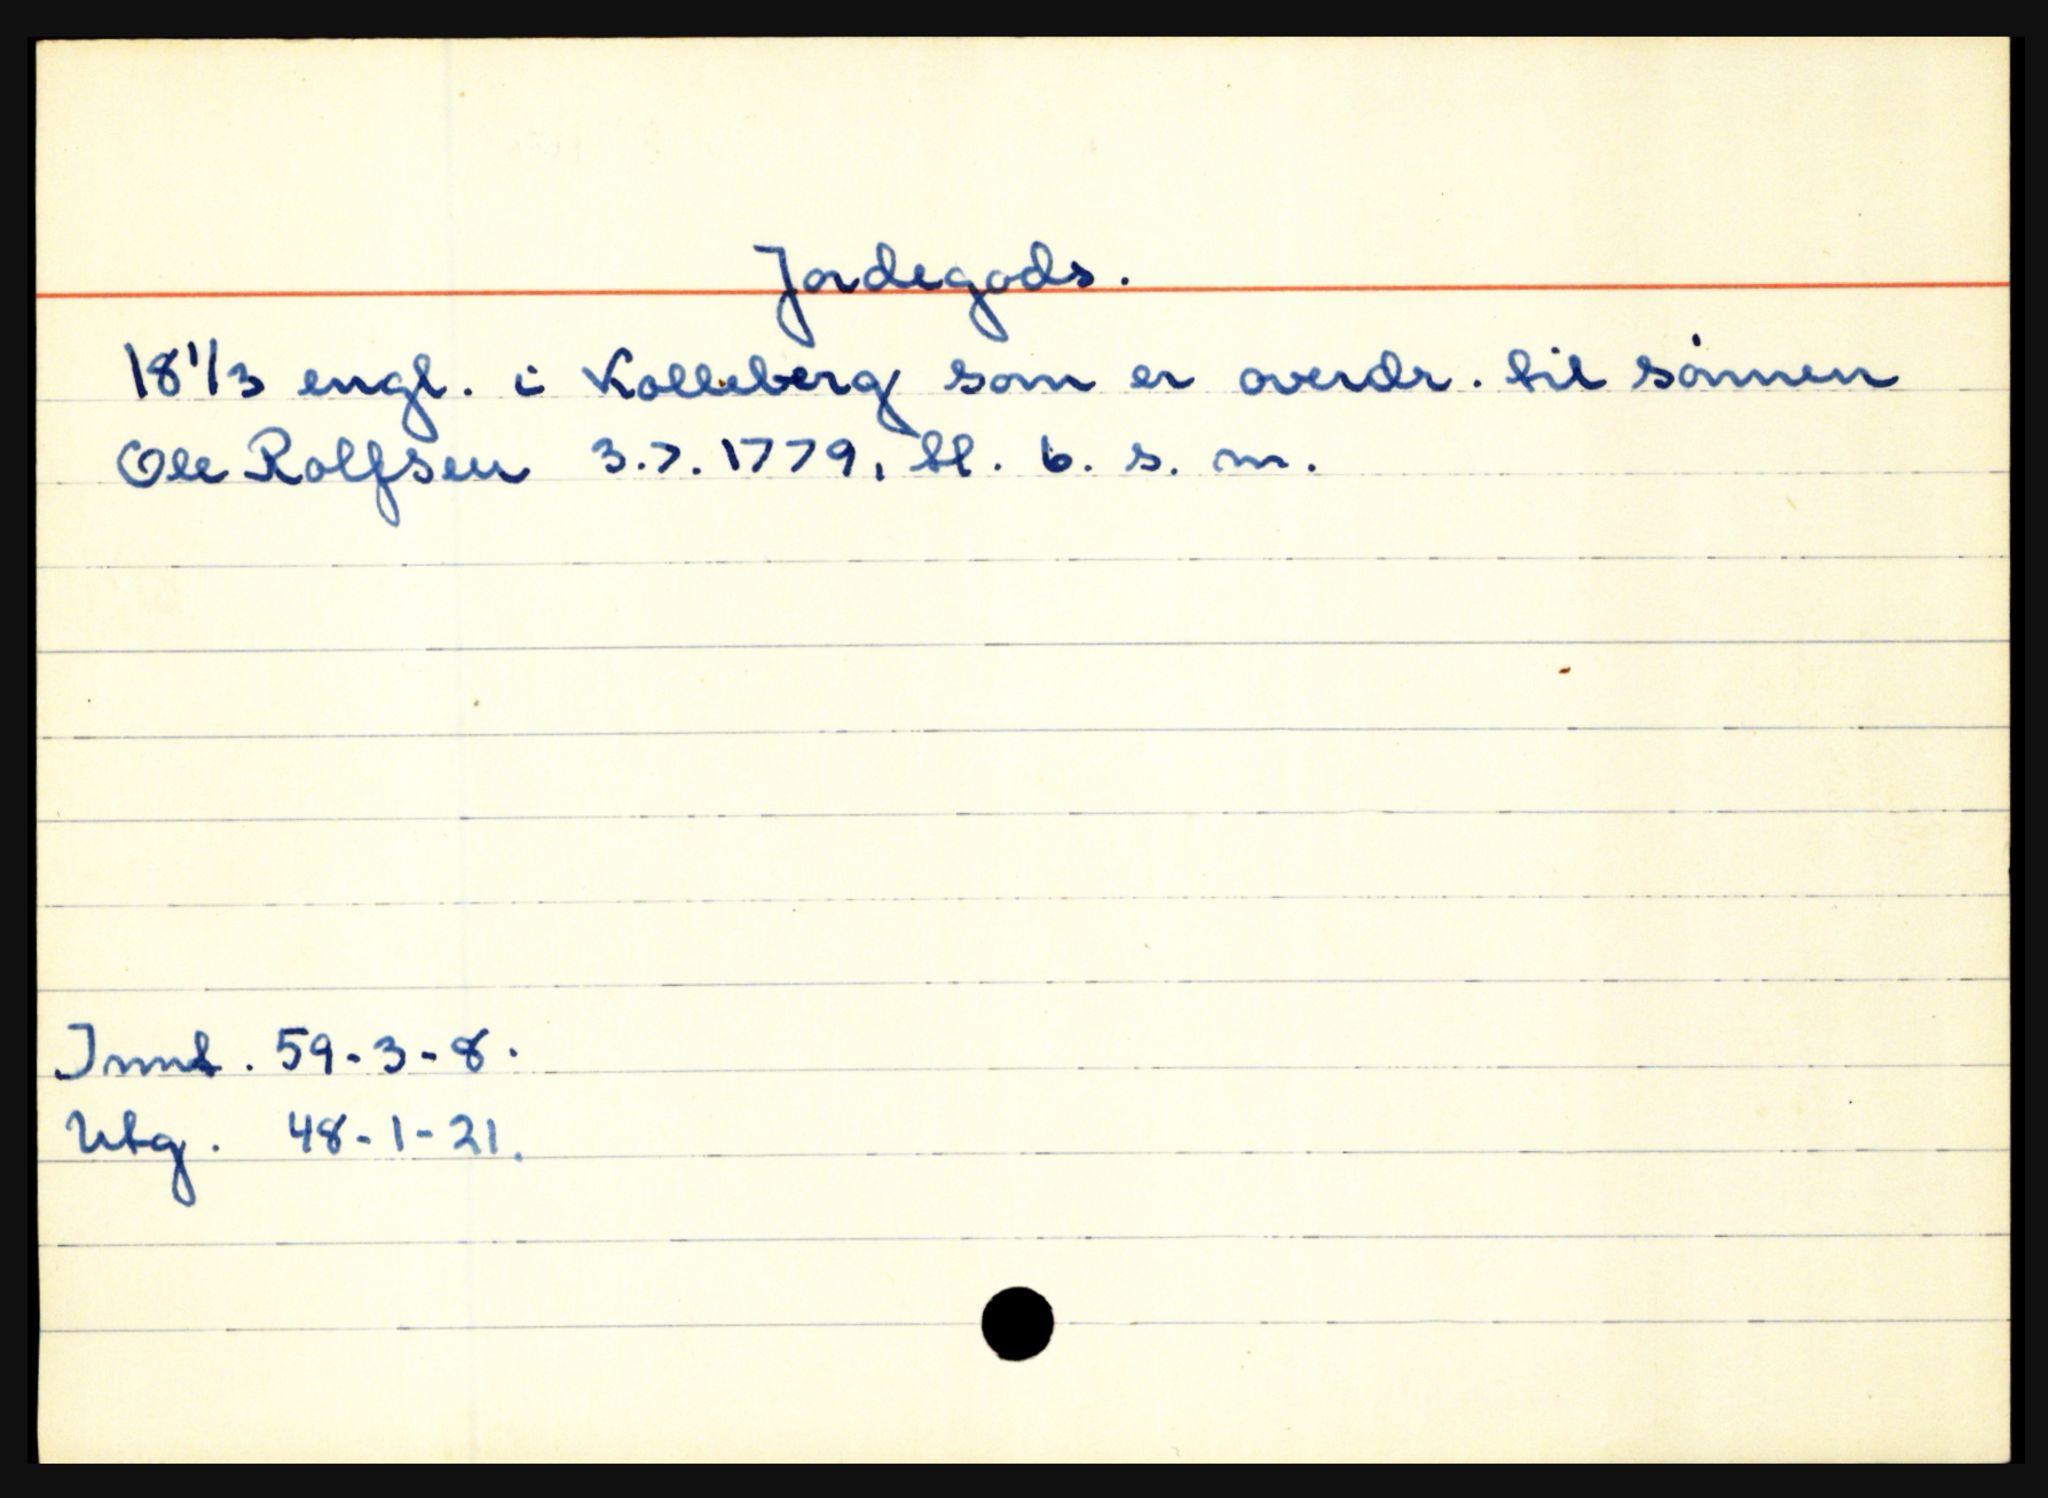 Jordegods.
18 1/3 engl. i Kolleberg som er overdr. til sønnen
Ole Rolfsen 3.7.1779, tl. b. s. m.
Innt. 59-3-8.
Utg. 48-1-21.